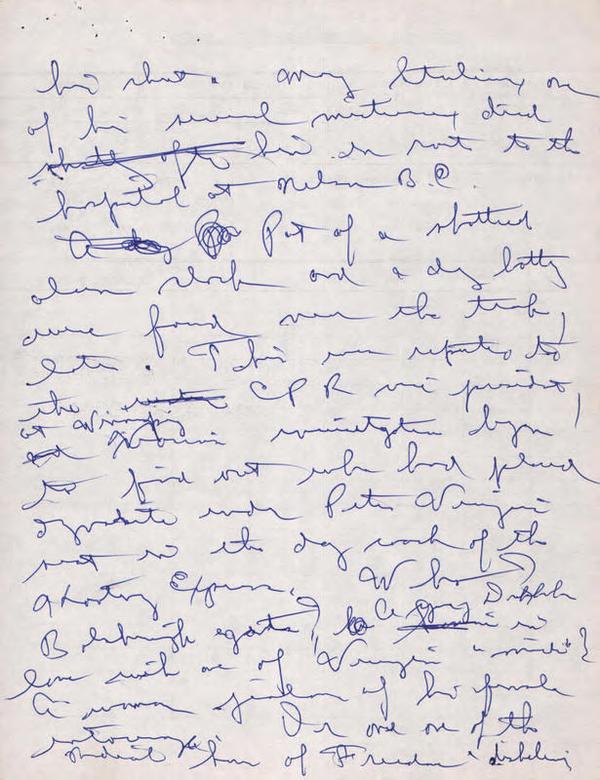 his chest. Mary one
of his several mistresses, died
shortly after him en route to the
hospital at Nelson B.C.
A day Part of a
alarm clock and a dry battery
were found near the track,
later. This was reported to
the CPR vice president,
at Winnipeg
began
to find out who had placed
dynamite under Peter Verigin
seat in the day coach of the
Kootenay Express. Who
Bolshevik agents? A young in
love with one of Verigin "nieces"?
A woman jealous of his female
entourage? Or one of the
Sons of Freedom